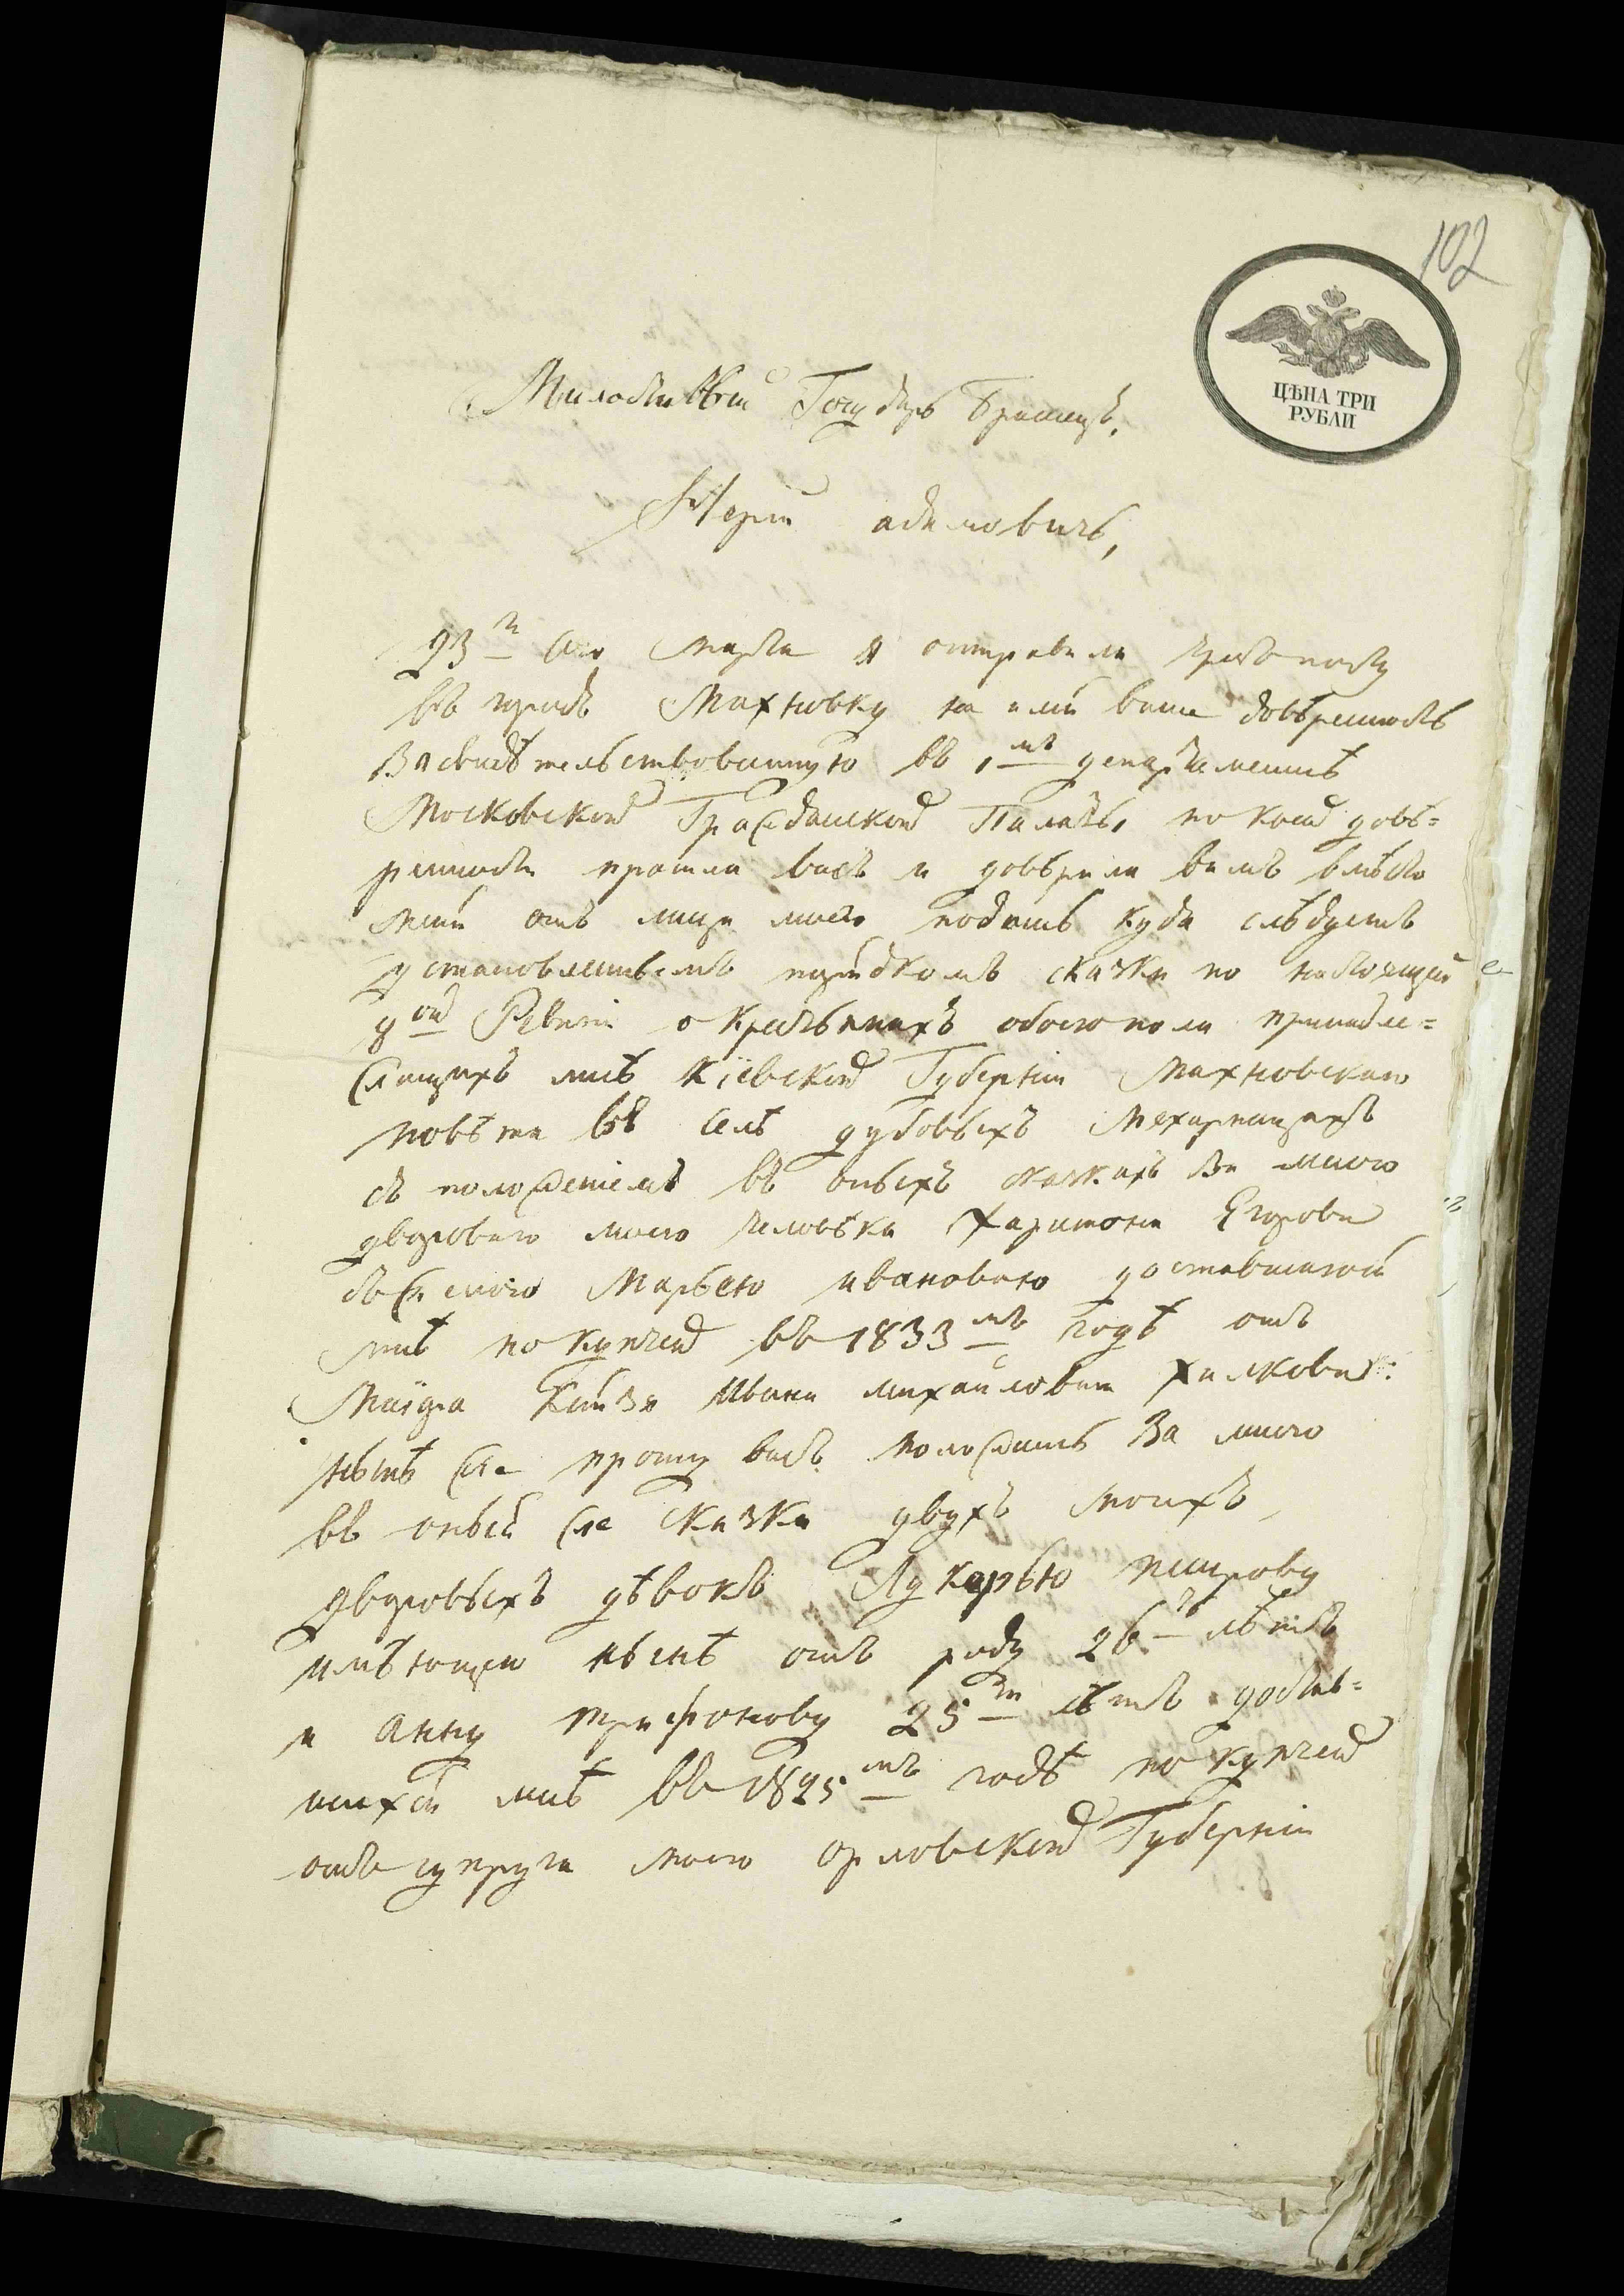 102
ЦѢНА ТРИ
РУБЛИ
Милостивый Государь братецъ,
Юрий адамовичь,
23го сего марта я отправила страховую
въ городъ Махновку на имя ваше довѣренность
Засвидѣтельствованную въ 1мъ департаментѣ
Московской Гражданской Палаты, по коей довѣ=
ренности просила васъ и довѣрила вамъ вмѣсто
меня отъ лица моего подать куда слѣдуетъ
установленнымъ порядкомъ сказки по настоящей
8ой Ревизіи о Крестьянахъ обоего пола принадле=
жащихъ мнѣ Кіевской Губерніи Махновскаго
повѣта въ селѣ дубовыхъ Махаринцахъ
съ положеніемъ въ оныхъ сказкахъ за мною
двороваго моего человѣка Харитона Егорова
съ женою Марьею ивановою доставшагося
мнѣ по купчей въ 1833мъ годѣ отъ
Маіора Князя Ивана михайловича Хилкова:
нынѣ же прошу васъ положить За мною
въ оныя же сказки двухъ моихъ
дворовыхъ дѣвокъ Лукерью петрову
имѣющею нынѣ отъ роду 26ть лѣтъ
и Анну трифонову 25ти лѣтъ достав=
шихся мнѣ въ 1825мъ годѣ по купчей
отъ супруга моего орловской Губерніи